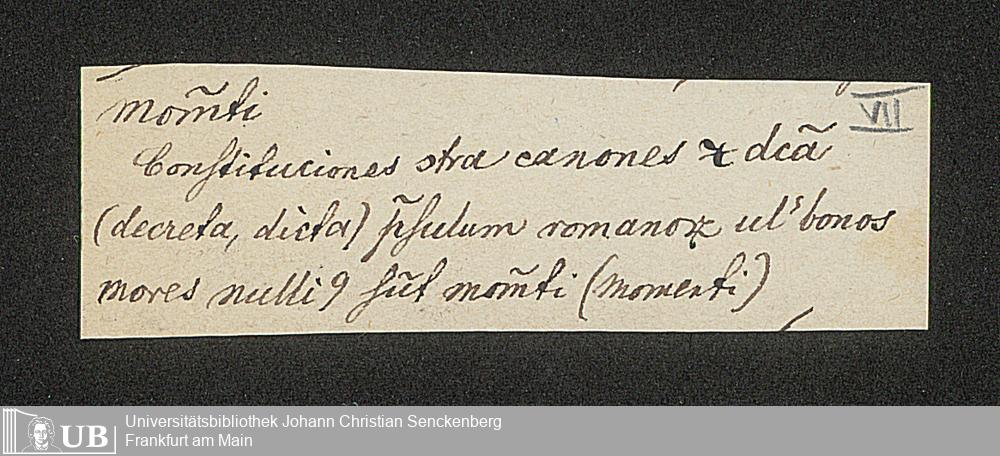 mom̃ti
VII
Conſtituciones ɔtra canones ⁊ dcã
(decreta, dicta) p̃ſulum romanoꝝ ul's bonos
mores nulliꝰ ſũt mom̃ti (momenti)
Universitätsbibliothek Johann Christian Senckenberg
Frankfurt am Main
UB